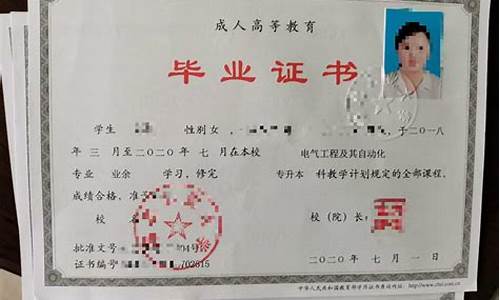 成人高等教育
毕业证书
学生 性别女， ，于二〇一八
年 三 月至二〇二〇年 七 月在本校 电气工程及其自动化
专业 业余 学习，修完 专升本 科教学计划规定的全部课程，
成绩合格，准予
校 名 校（院）长：
批准文号： 04号
证书编号： 702515 二〇二〇 年 七 月 一 日
中华人民共和国教育部学历证书查询网址：http://www.chsi.com.cn